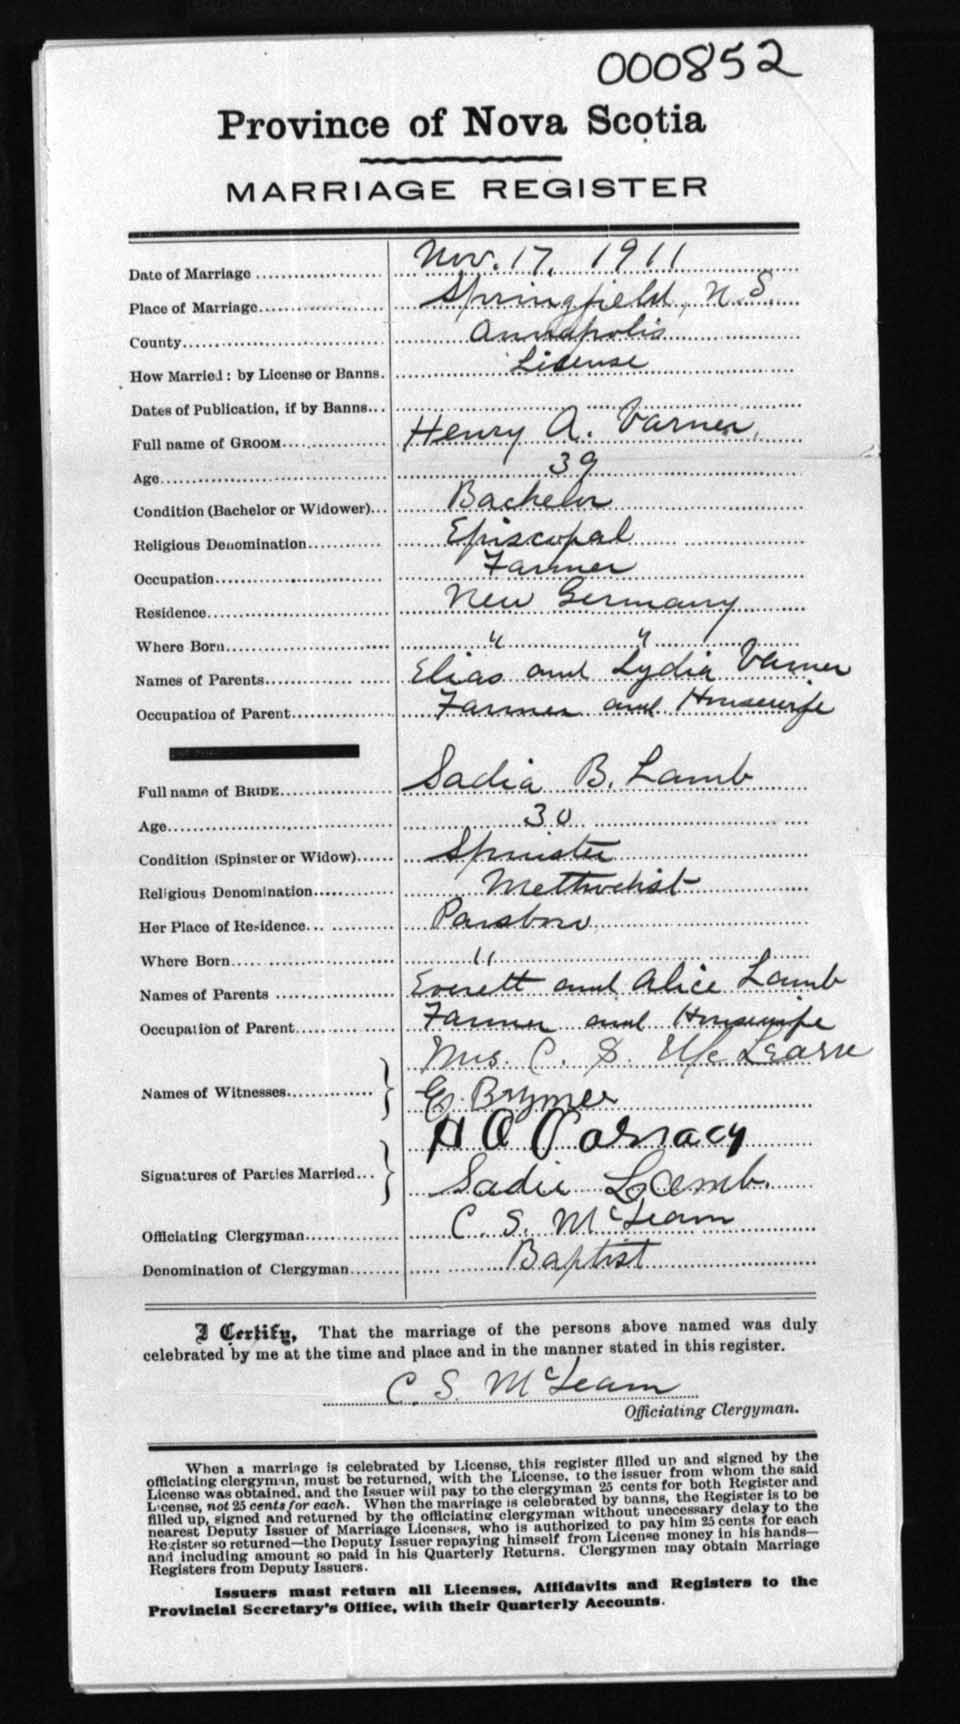 000852
Province of Nova Scotia
MARRIAGE REGISTER
Date of Marriage Nov. 17, 1911
Place of Marriage Springfield, N.S.
County Annapolis
How Married: by License or Banns. License
Dates of Publication, if by Banns
Full name of GROOM Henry A. Varner
Age 39
Condition (Bachelor or Widower) Bachelor
Religious Denomination Episcopal
Occupation Farmer
Residence New Germany
Where Born " "
Names of Parents Elias and Lydia Varner
Occupation of Parent Farmer and Housewife
Full name of BRIDE Sadia B. Lamb
Age 30
Condition (Spinster or Widow) Spinster
Religious Denomination Methodist
Her Place of Residence Parsboro
Where Born "
Names of Parents Everett and Alice Lamb
Occupation of Parent Farmer and Housewife
Mrs. C. S. McLearn
Names of Witnesses
E. Brymer
H A
Signatures of Parties Married
Sadie Lamb.
Officiating Clergyman C. S. McLearn
Denomination of Clergyman Baptist
I Certify, That the marriage of the persons above named was duly
celebrated by me at the time and place and in the manner stated in this register.
C. S. McLearn
Officiating Clergyman.
When a marriage is celebrated by License, this register filled up and signed by the
officiating clergyman, must be returned, with the License, to the issuer from whom the said
License was obtained, and the Issuer will pay to the clergyman 25 cents for both Register and
License, not 25 cents for each. When the marriage is celebrated by banns, the Register is to be
filled up, signed and returned by the officiating clergyman without unecessary delay to the
nearest Deputy Issuer of Marriage Licenses, who is authorized to pay him 25 cents for each
Register so returned—the Deputy Issuer repaying himself from License money in his hands—
and including amount so paid in his Quarterly Returns. Clergymen may obtain Marriage
Registers from Deputy Issuers.
Issuers must return all Licenses, Affidavits and Registers to the
Provincial Secretary's Office, with their Quarterly Accounts.